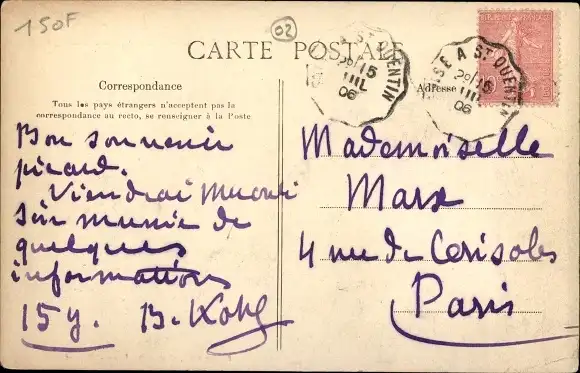 150F
02
CARTE POSTALE
Correspondance
Tous les pays étrangers n'acceptent pas la
correspondance au recto, se renseigner à la Poste
Adresse
A ST QUENTIN
15
JUIL
06
A ST QUENTIN
15
JUIL
06
Bon souvenir
picard.
Viendrai
munie de
quelques
informations
15 y. B. Kohl
Mademoiselle
Marx
4 rue de Cerisoles
Paris